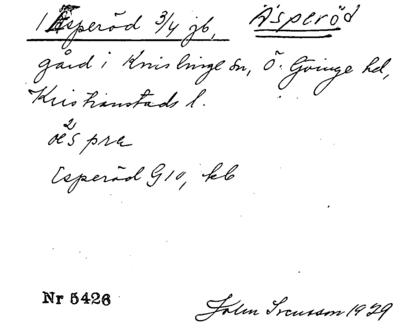 1 Esperöd 3/4 jb, Äsperöd
gård i Knislinge sn, Ö. Göinge hd,
Kristianstads l.
Esperöd G10, kb
Nr 5426 John Svensson 1929